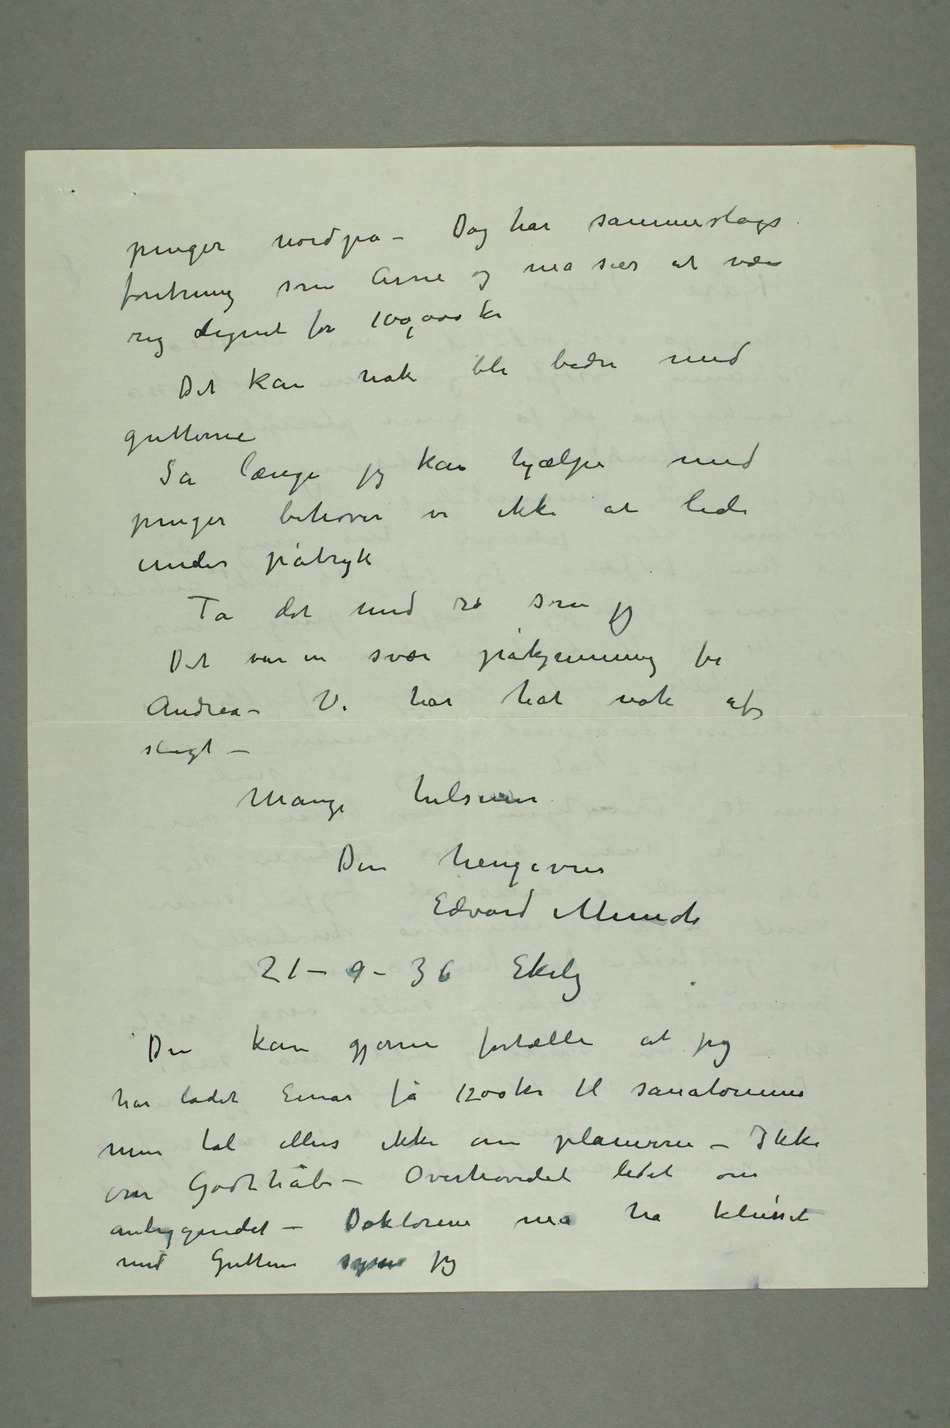 penger nordpå – Dag har sammeslags
foretning som Arne og må sies at være
rig lignet for 100,000 kr
Det kan nok bli bedre med
guttene
Så længe jeg kan hjælpe med
penger behøver vi ikke at lide
under påtryk
Ta det med ro som jeg
Det var en svær påkjenning for
Andrea – Vi har hat nok af
sligt –
Mange hilsener
Din hengivne
Edvard Munch
21 – 9 – 36 Ekely
Du kan gjerne fortælle at jeg
har ladet Einar få 1200 kr til sanatoriume
men tal ellers ikke om planerne – Ikke
om Godthåb – Overhovedet lidet om
anliggendet – Doktorene må ha klusset
med Guttene synes jeg